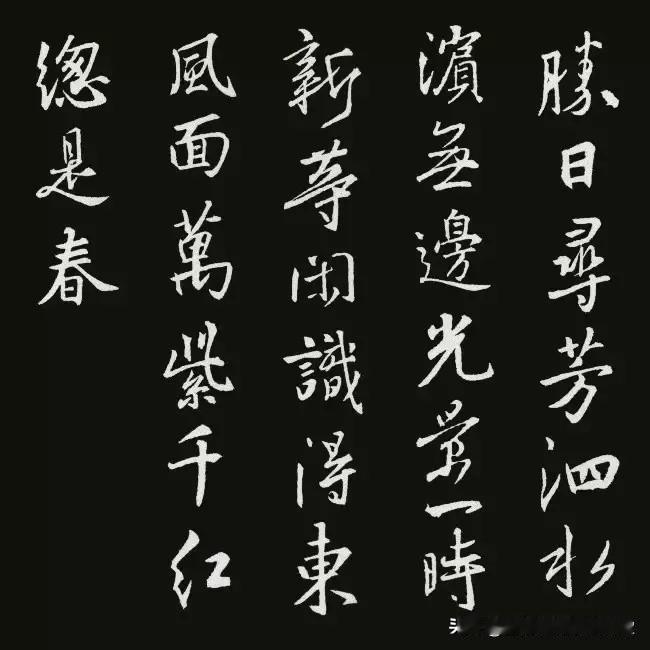 勝日尋芳泗水
濱無邊光景一時
新等閑識得東
風面萬紫千红
總是春
头